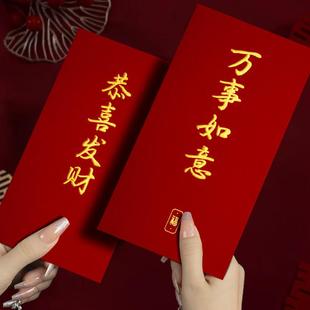 恭喜发财
万事如意
福